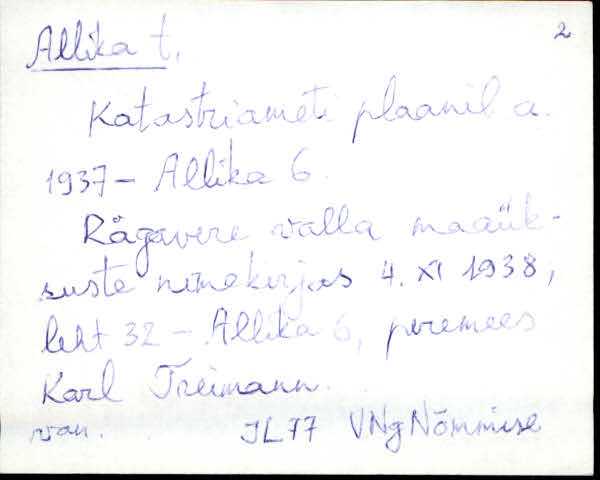 2
Allika t.
Katastriameti plaanil a.
1937 - Allika 6.
Rägavere valla maaük-
suste nimekirjas 4. XI 1938,
leht 32 - Allika 6, peremees
Karl Treimann.
van. JL77 VNg Nõmmise